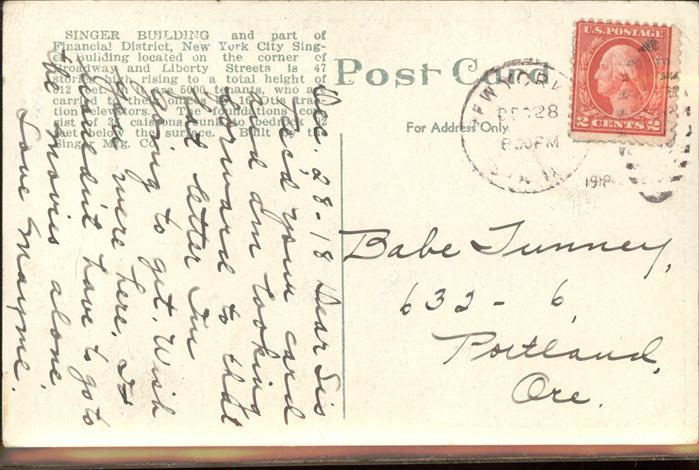 SINGER BUILDING and part of
Financial District, New York City Sing-
building located on the corner of
Broadway and Liberty Streets is 47
stories high rising to a total height of
612 feet. It are 5000 tenants, who are
carried to their offices by 16 Otis trac-
tion elevators. The foundations con-
sist of 34 caissons sunk to bedrock 92
feet below the surface. Built by
Singer Mfg. Co.
Post Card
For Address Only
U.S. POSTAGE
2 CENTS 2
NEW YORK
DEC 28
8 30 PM
1918
Dec. 28-18 Dear Sis
Rec'd your card
and am looking
forward to that
fat letter I'm
going to get. Wish
you were here. I
wouldn't have to go to
the movies alone
Love Mayme.
Babe Tunney,
632 - 6,
Portland,
Ore.